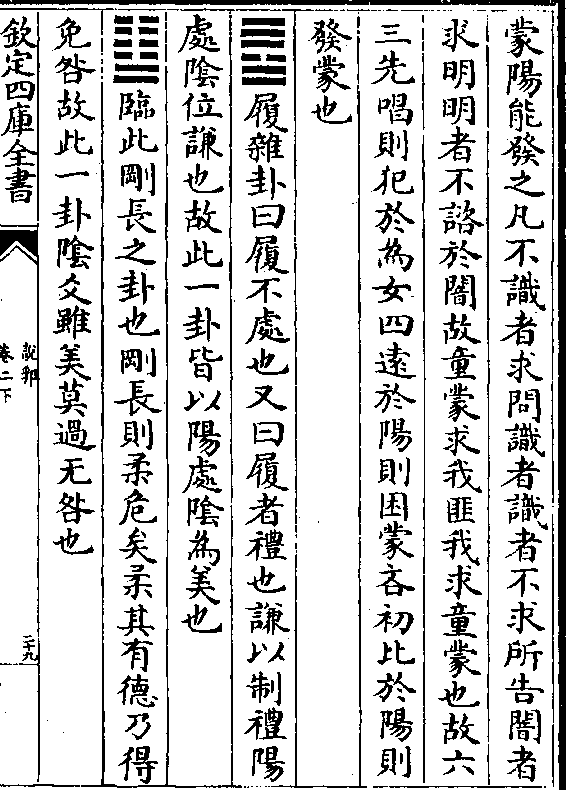 蒙陽能發之凡不識者求問識者識者不求所告闇者
求明明者不諮於闇故童蒙求我匪我求童蒙也故六
三先唱則犯於為女四遠於陽則困蒙吝初比於陽則
發蒙也
䷉履雜卦曰履不處也又曰履者禮也謙以制禮陽
處陰位謙也故此一卦皆以陽處陰為美也
䷒臨此剛長之卦也剛長則柔危矣柔其有德乃得
免咎故此一卦陰爻雖美莫過无咎也
欽定四庫全書
說郛
卷二下
二十九